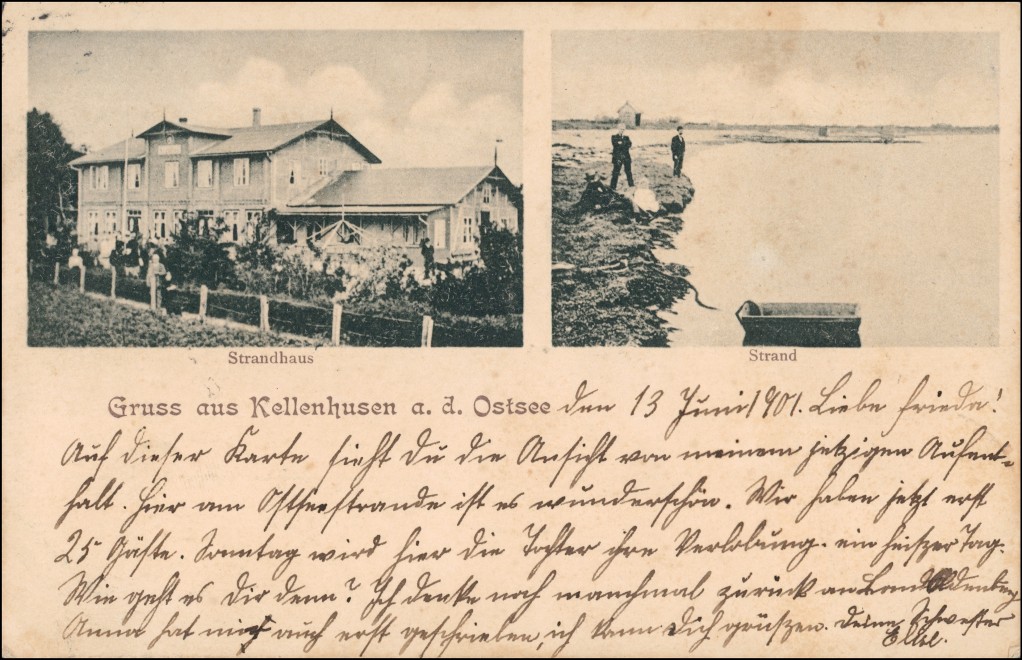 Strandhaus
Strand
Gruss aus Kellenhusen a. d. Ostsee den 13 Juni 1901. Liebe Frieda!
Auf dieser Karte siehst Du die Ansicht von meinem jetzigen Aufent-
halt. Hier am Ostseestrande ist es wunderschön. Wir haben jetzt erst
25 Gäste. Sonntag wird hier die Tochter ihre Verlobung. ein heiszer Tag.
Wie geht es Dir denn? Ich denke noch manchmal zurück an Oldenburg
Anna hat mir auch erst geschrieben, ich kann Dich grüszen. Deine Schwester
Else.